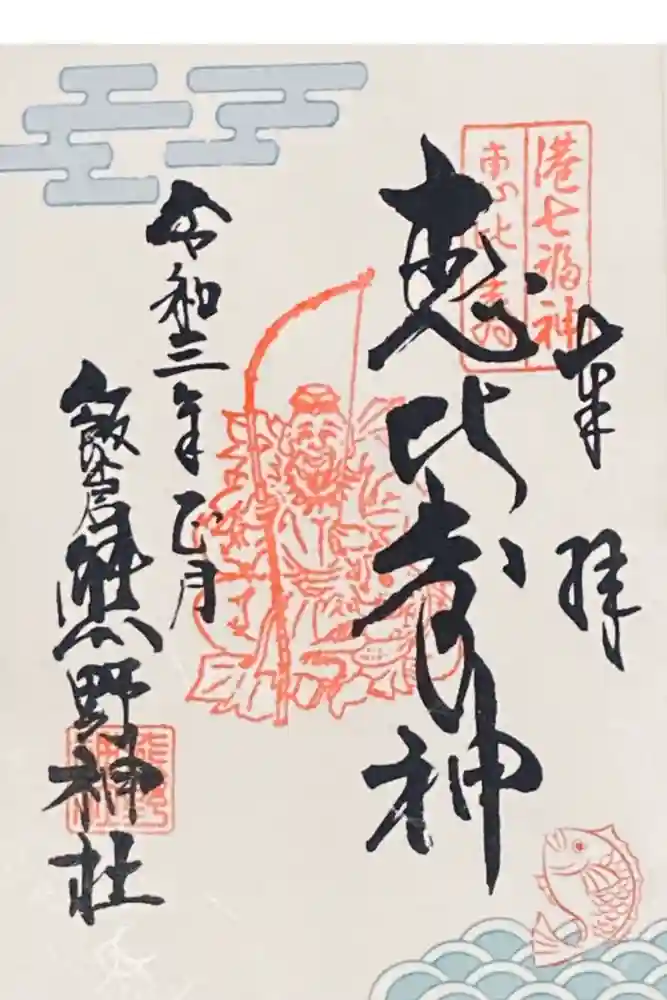 港七福神
恵比寿
奉拝
恵比寿神
令和三年正月
飯倉熊野神社